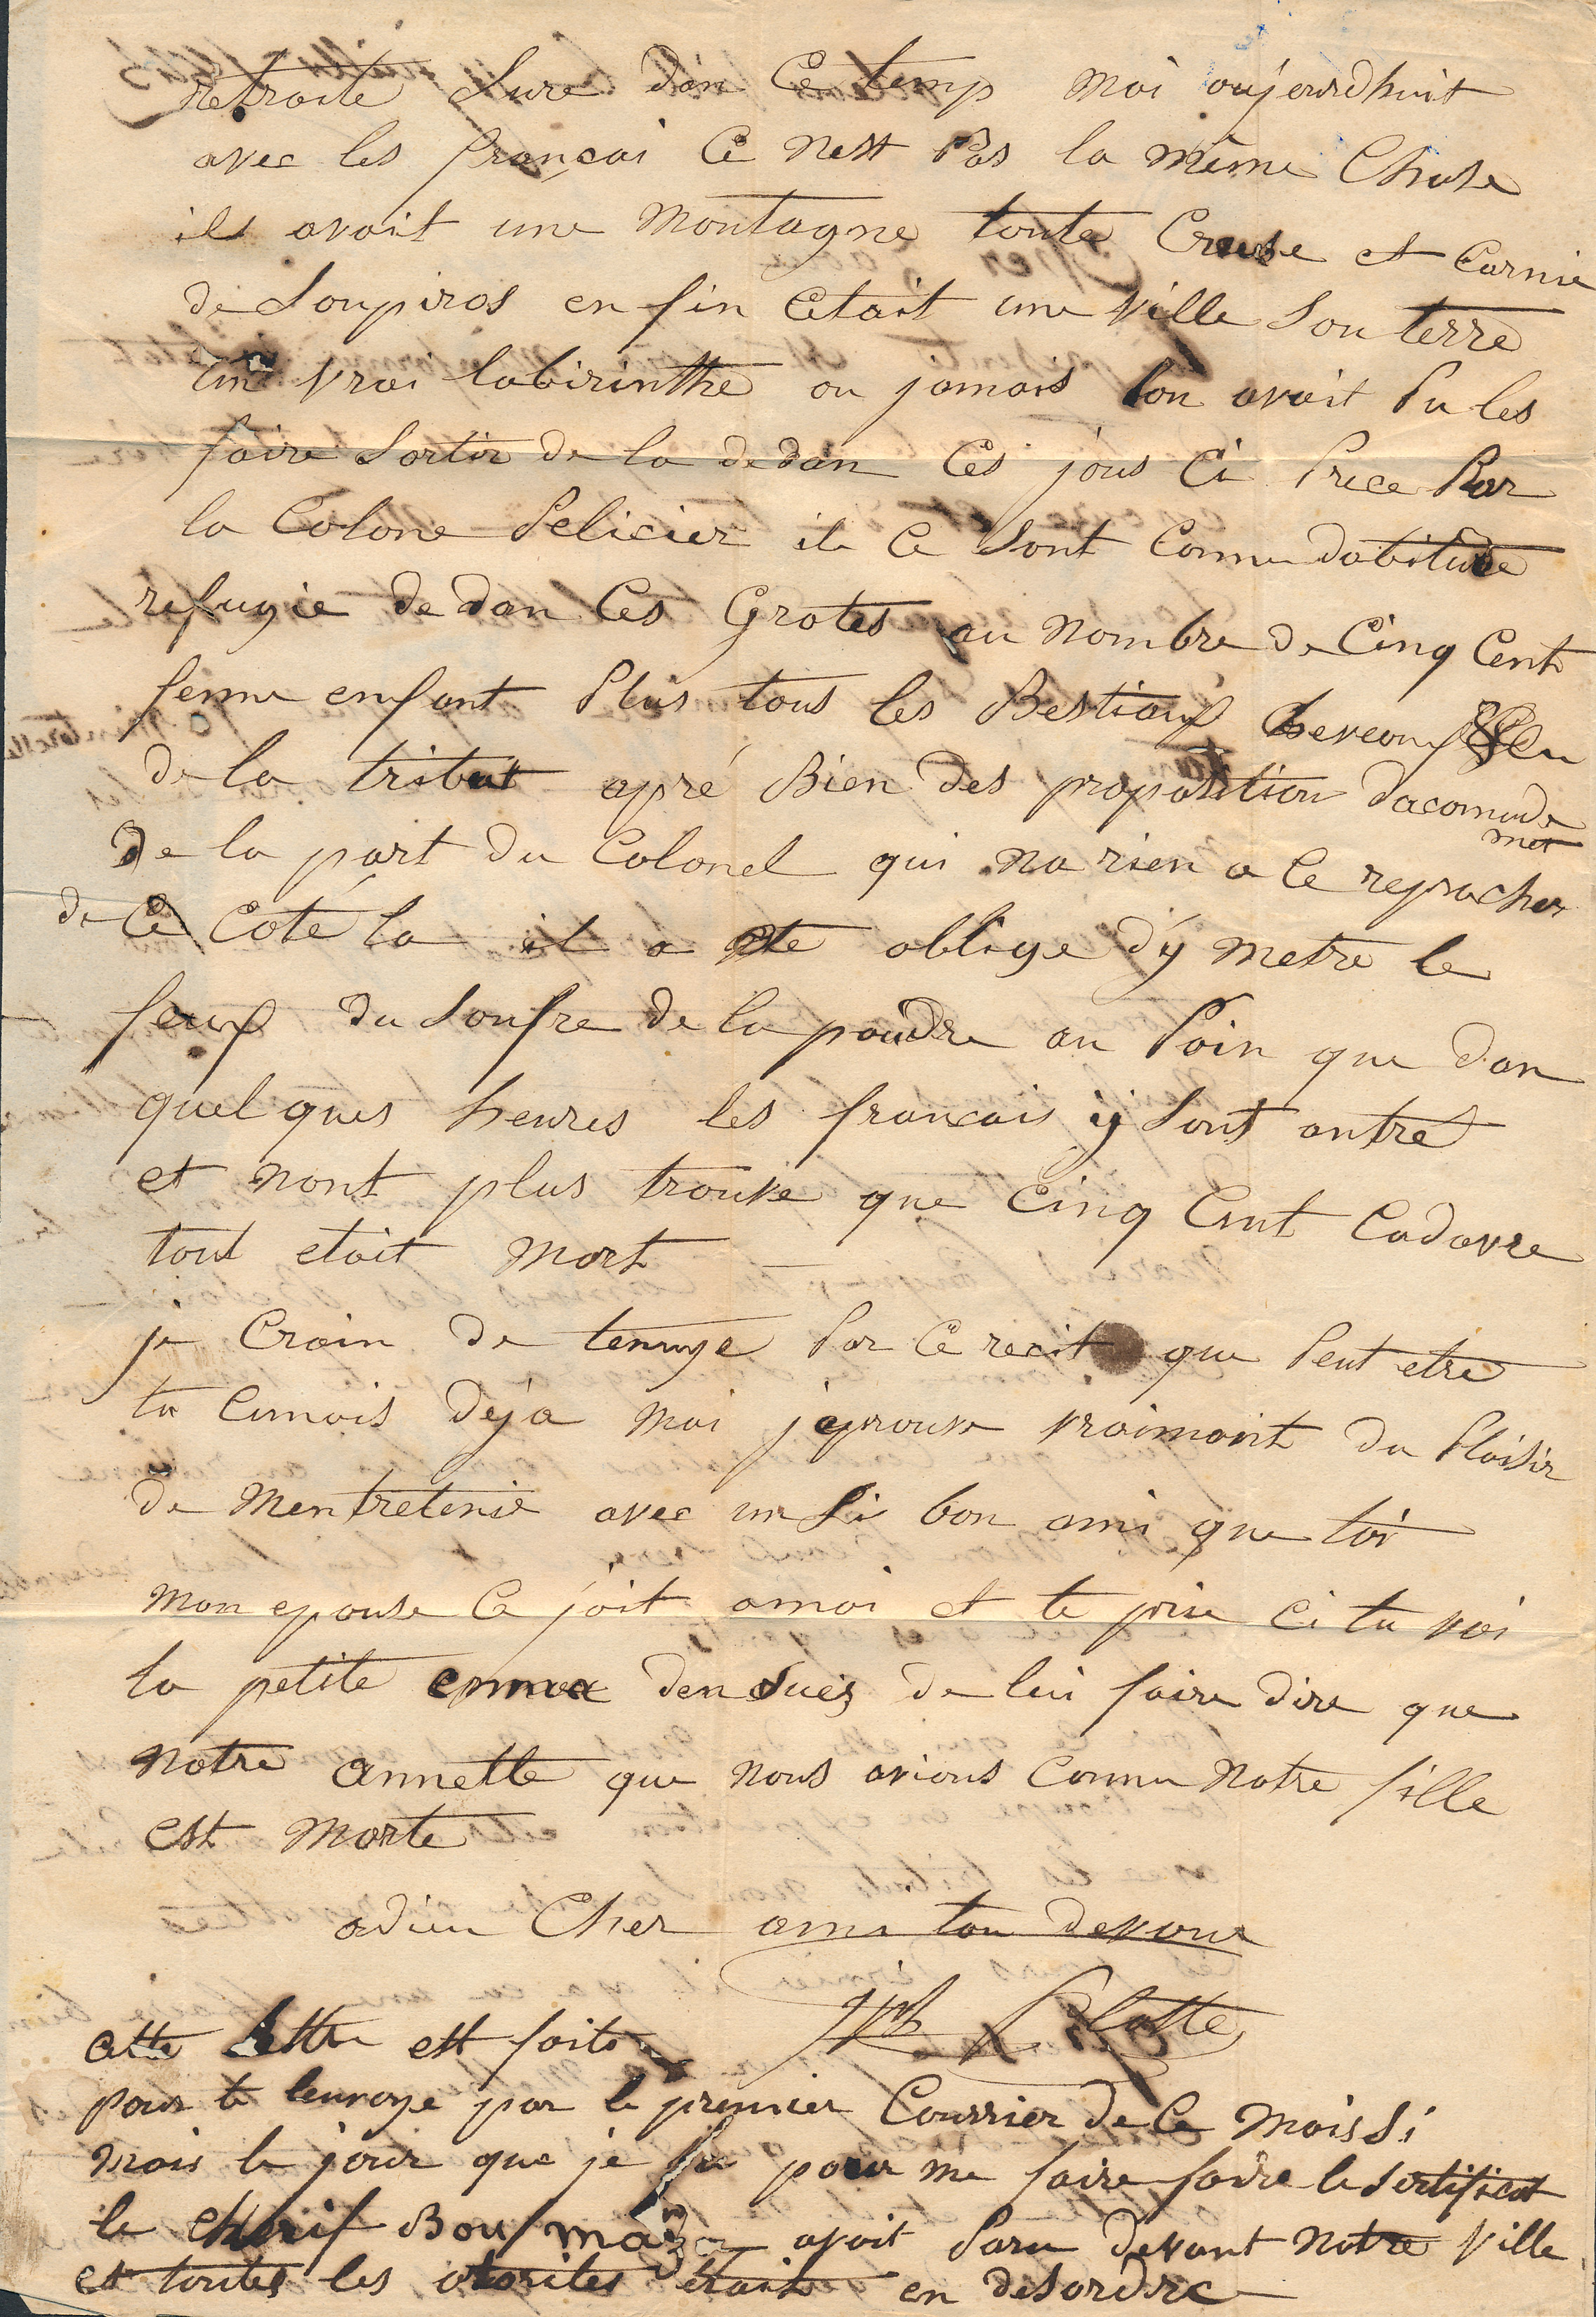 retraite sure dan ce temp mai aujourdhuit
avec les françai ce nest pas la même chose
ils avait une montagne toute creuse et garnie
de soupiros enfin cetait une ville sou terre
un vrai labirinthe ou jamais lon avait pu les
faire sortir de la dedan ces jous ci prece par
la colone pelicier ils ce sont comme dabitude
refugie dedan ces grotes au nombre de cinq cent
femme enfant plus tous les bestiauf cheveauf
de la tribut apré bien des proposition dacomode
met
de la part du colonel qui na rien a ce reprocher
de ce coté la il a ete oblige d'y metre le
feuf du soufre de la poudre au poin que dan
quelques heures les francais y sont antre
et nont plus trouve que cinq cent cadavre
tout etait mort
je crain de tenuye par ce recit que peut etre
tu connais déja mai j'eprouve vraimant du plaisir
de mentretenir avec un si bon ami que toi
mon epouse ce joit a moi et te prie ci tu voi
la petite emma densuez de lui faire dire que
notre annette que nous avions comme notre fille
est morte
adieu cher ami ton devoue
Jph Platte
cette lettre est faite
pour te lenvoye par le premier courrier de ce mois si
mais le jour que je fu pour me faire faire le sertificat
le cherif Bou maza avait paru devant notre ville
et toutes les otorites étaint en desordre